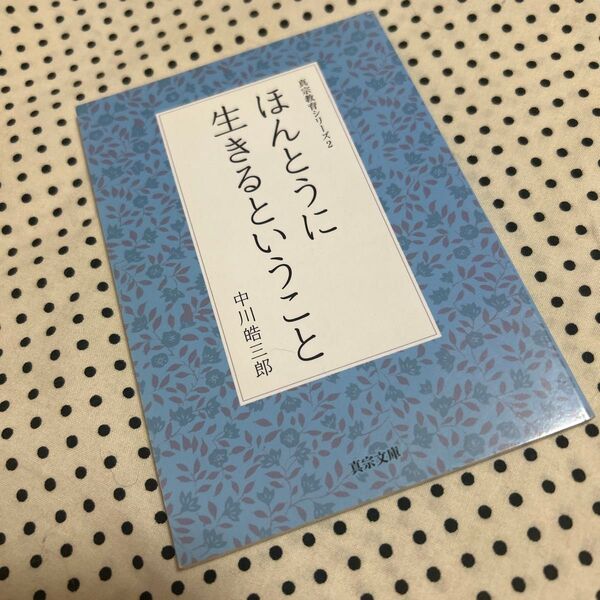 真宗教育シリーズ2
ほんとうに
生きるということ
中川皓三郎
真宗文庫